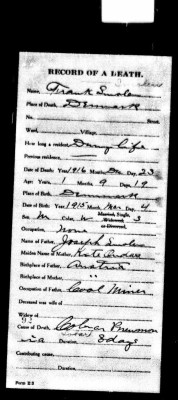 RECORD OF A DEATH.
Name, Frank
Place of Death, Denmark
No. Street.
Ward, Village,
How long a resident, During life
Previous residence,
Date of Death: Year, 1916 Month, Dec Day, 23
Age: Years, 1 Months, 9 Days, 19
Place of Birth, Denmark
Date of Birth: Year, 1915 Month, Mar Day, 4
Sex, M Color, W Married, Single, Widowed or Divorced, S
Occupation, none
Name of Father, Joseph
Maiden Name of Mother, Kate
Birthplace of Father, Austria
Birthplace of Mother, "
Occupation of Father, Coal Miner
Deceased was wife of
Widow of
92
Cause of Death, Lobar Pneumon
ia Duration, 8 days
Contributing cause,
Duration,